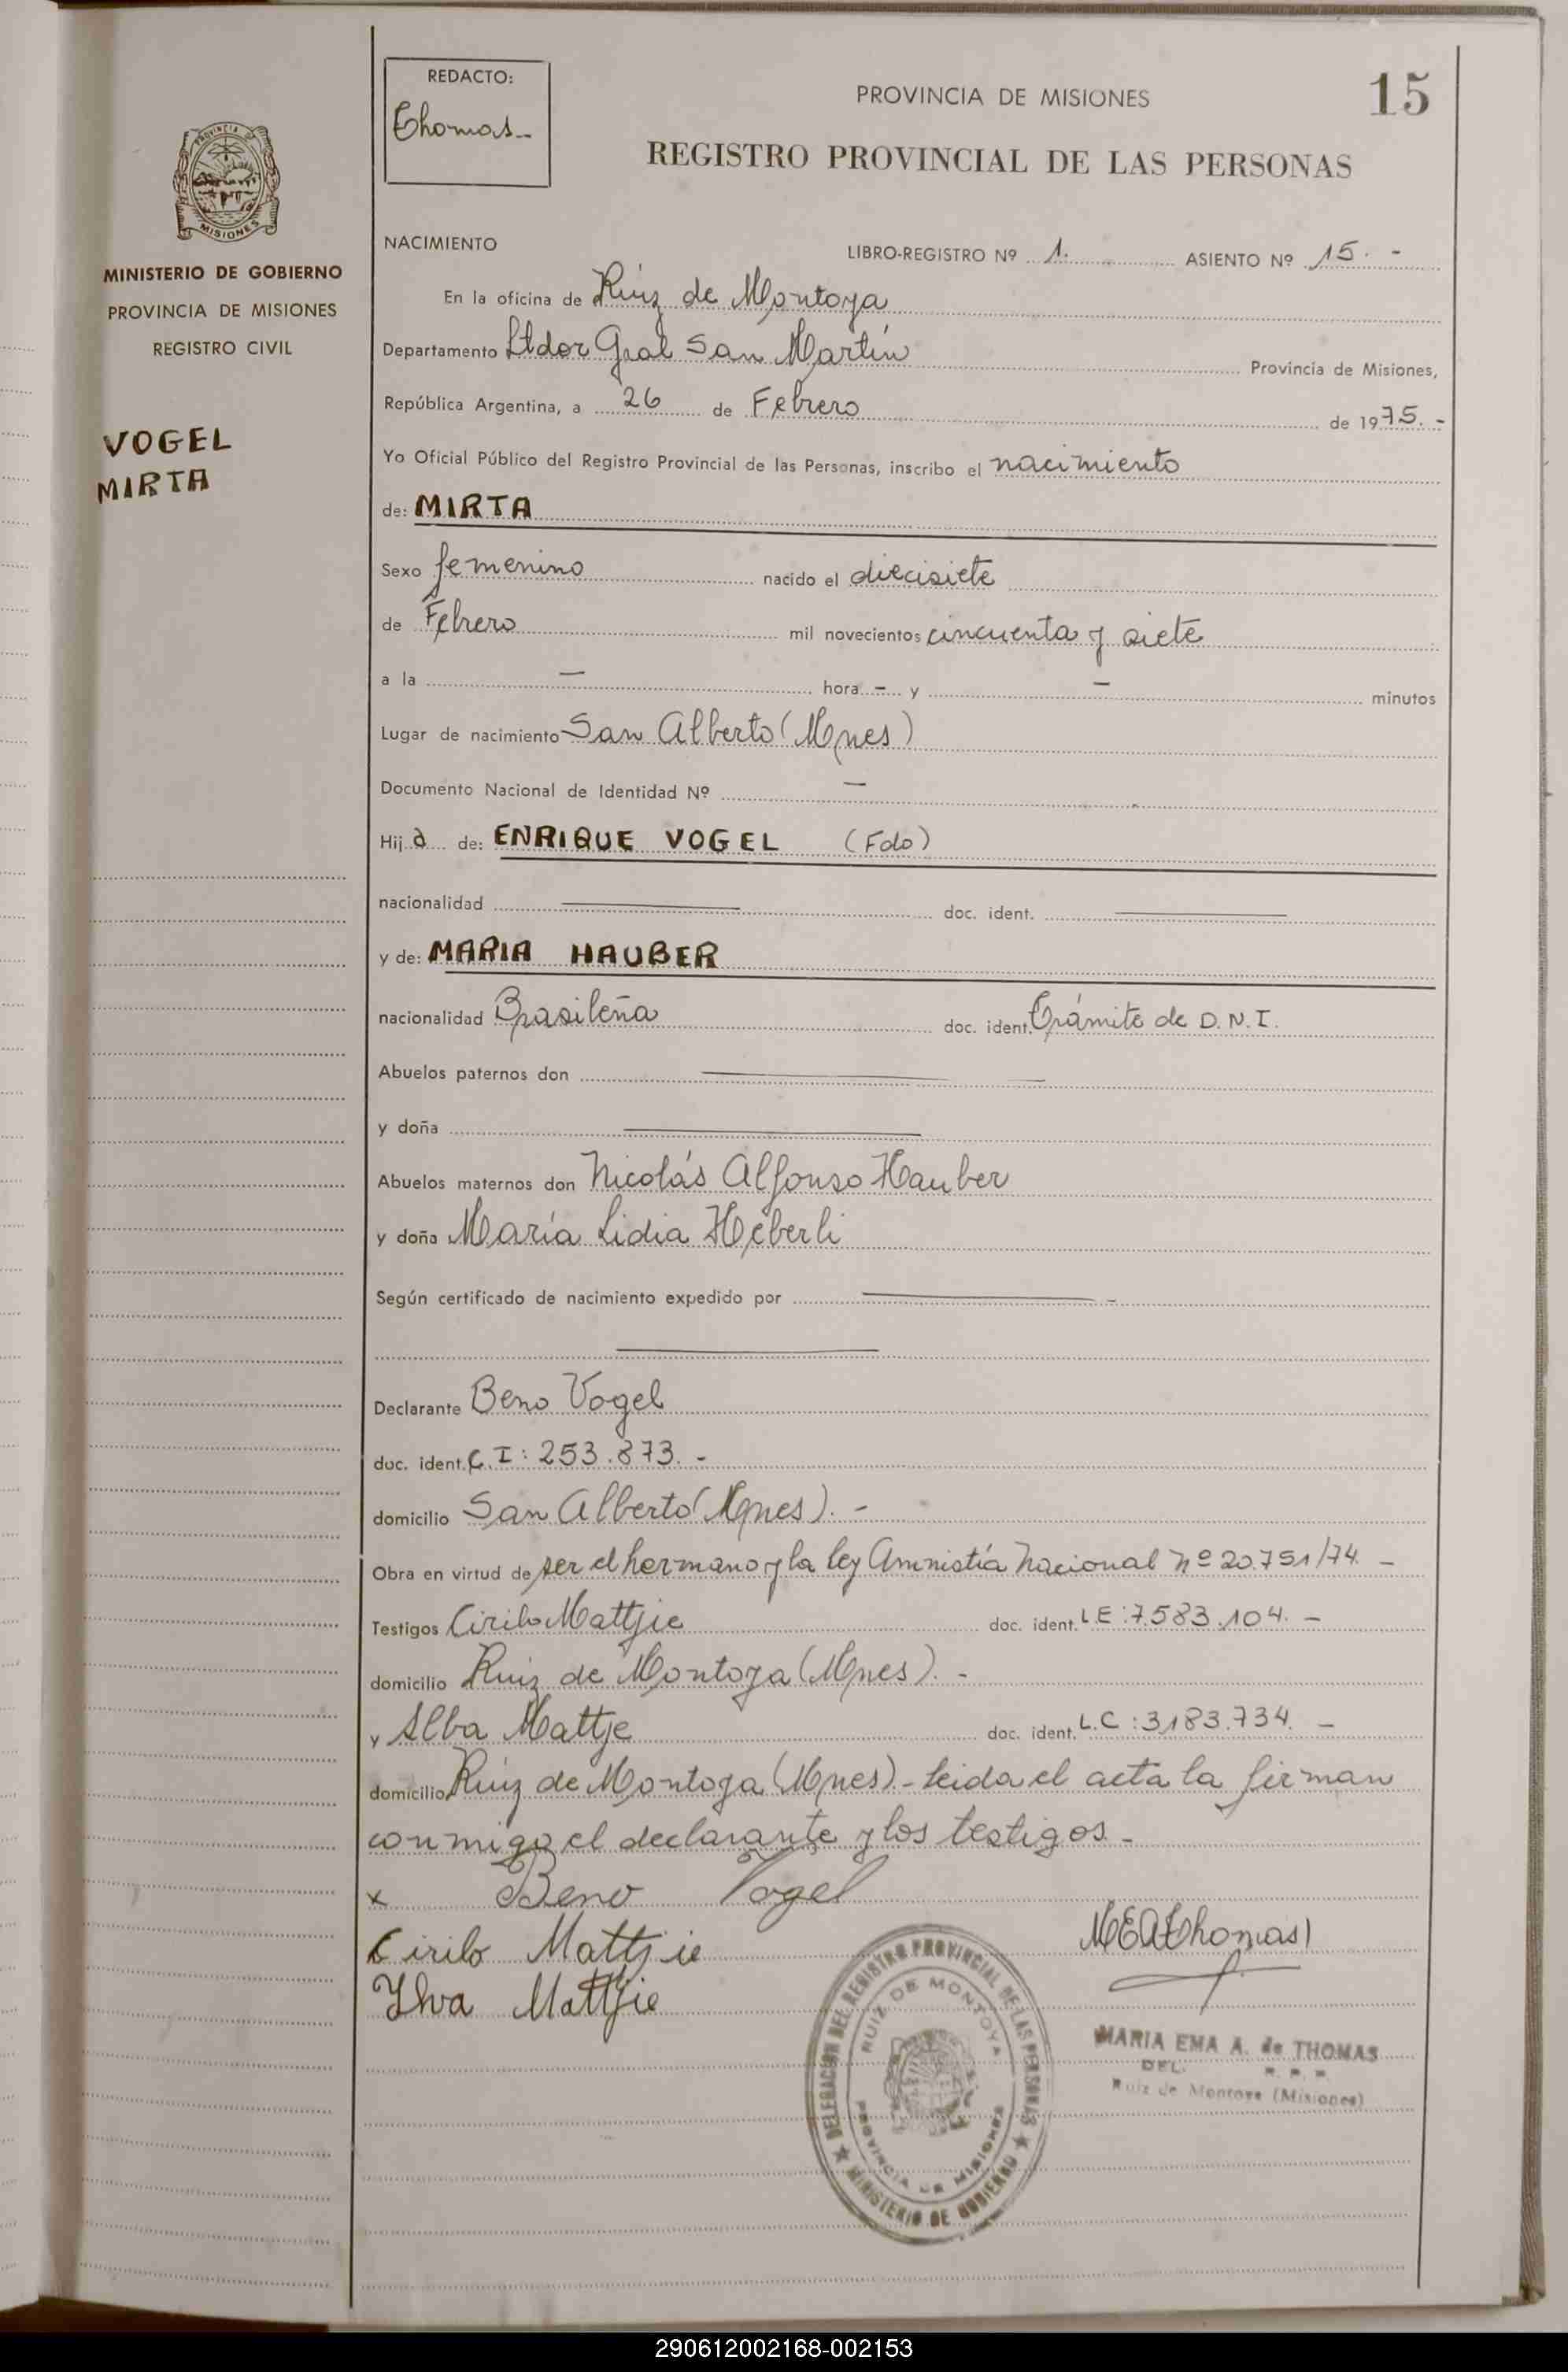 15
REDACTO:
Thomas-
PROVINCIA DE MISIONES
REGISTRO PROVINCIAL DE LAS PERSONAS
PROVINCIA DE
MISIONES
MINISTERIO DE GOBIERNO
PROVINCIA DE MISIONES
REGISTRO CIVIL
VOGEL
MIRTA
NACIMIENTO LIBRO-REGISTRO Nº 1. ASIENTO Nº 15. -
En la oficina de Ruiz de Montoya
Departamento Ltdor Gral San Martín Provincia de Misiones,
República Argentina, a 26 de Febrero de 1975. -
Yo Oficial Público del Registro Provincial de las Personas, inscribo el nacimiento
de: MIRTA
Sexo femenino nacido el diecisiete
de Febrero mil novecientos cincuenta y siete
a la — hora - y — minutos
Lugar de nacimiento San Alberto (Mnes)
Documento Nacional de Identidad Nº —
Hij a de: ENRIQUE VOGEL (Fdo)
nacionalidad — doc. ident. —
y de: MARIA HAUBER
nacionalidad Brasileña doc. ident. Trámite de D.N.I.
Abuelos paternos don —
y doña —
Abuelos maternos don Nicolás Alfonso Hauber
y doña María Lidia Héberli
Según certificado de nacimiento expedido por — -
—
Declarante Beno Vogel
doc. ident. C.I: 253.873. -
domicilio San Alberto (Mnes). -
Obra en virtud de ser el hermano y la ley Amnistía Nacional Nº 20.751/74. -
Testigos Cirilo Mattjie doc. ident. L.E: 7.583.104. -
domicilio Ruiz de Montoya (Mnes). -
y Alba Mattje doc. ident. L.C: 3183.734. -
domicilio Ruiz de Montoya (Mnes).- Leida el acta la firman
conmigo el declarante y los testigos. -
x Beno Vogel
Cirilo Mattjie
Ylva Mattjie
MEAThomas
DELEGACION DEL REGISTRO PROVINCIAL DE LAS PERSONAS
RUIZ DE MONTOYA
PROVINCIA DE MISIONES
MINISTERIO DE GOBIERNO
MARIA EMA A. de THOMAS
DEL. R. P. P.
Ruiz de Montoya (Misiones)
290612002168-002153